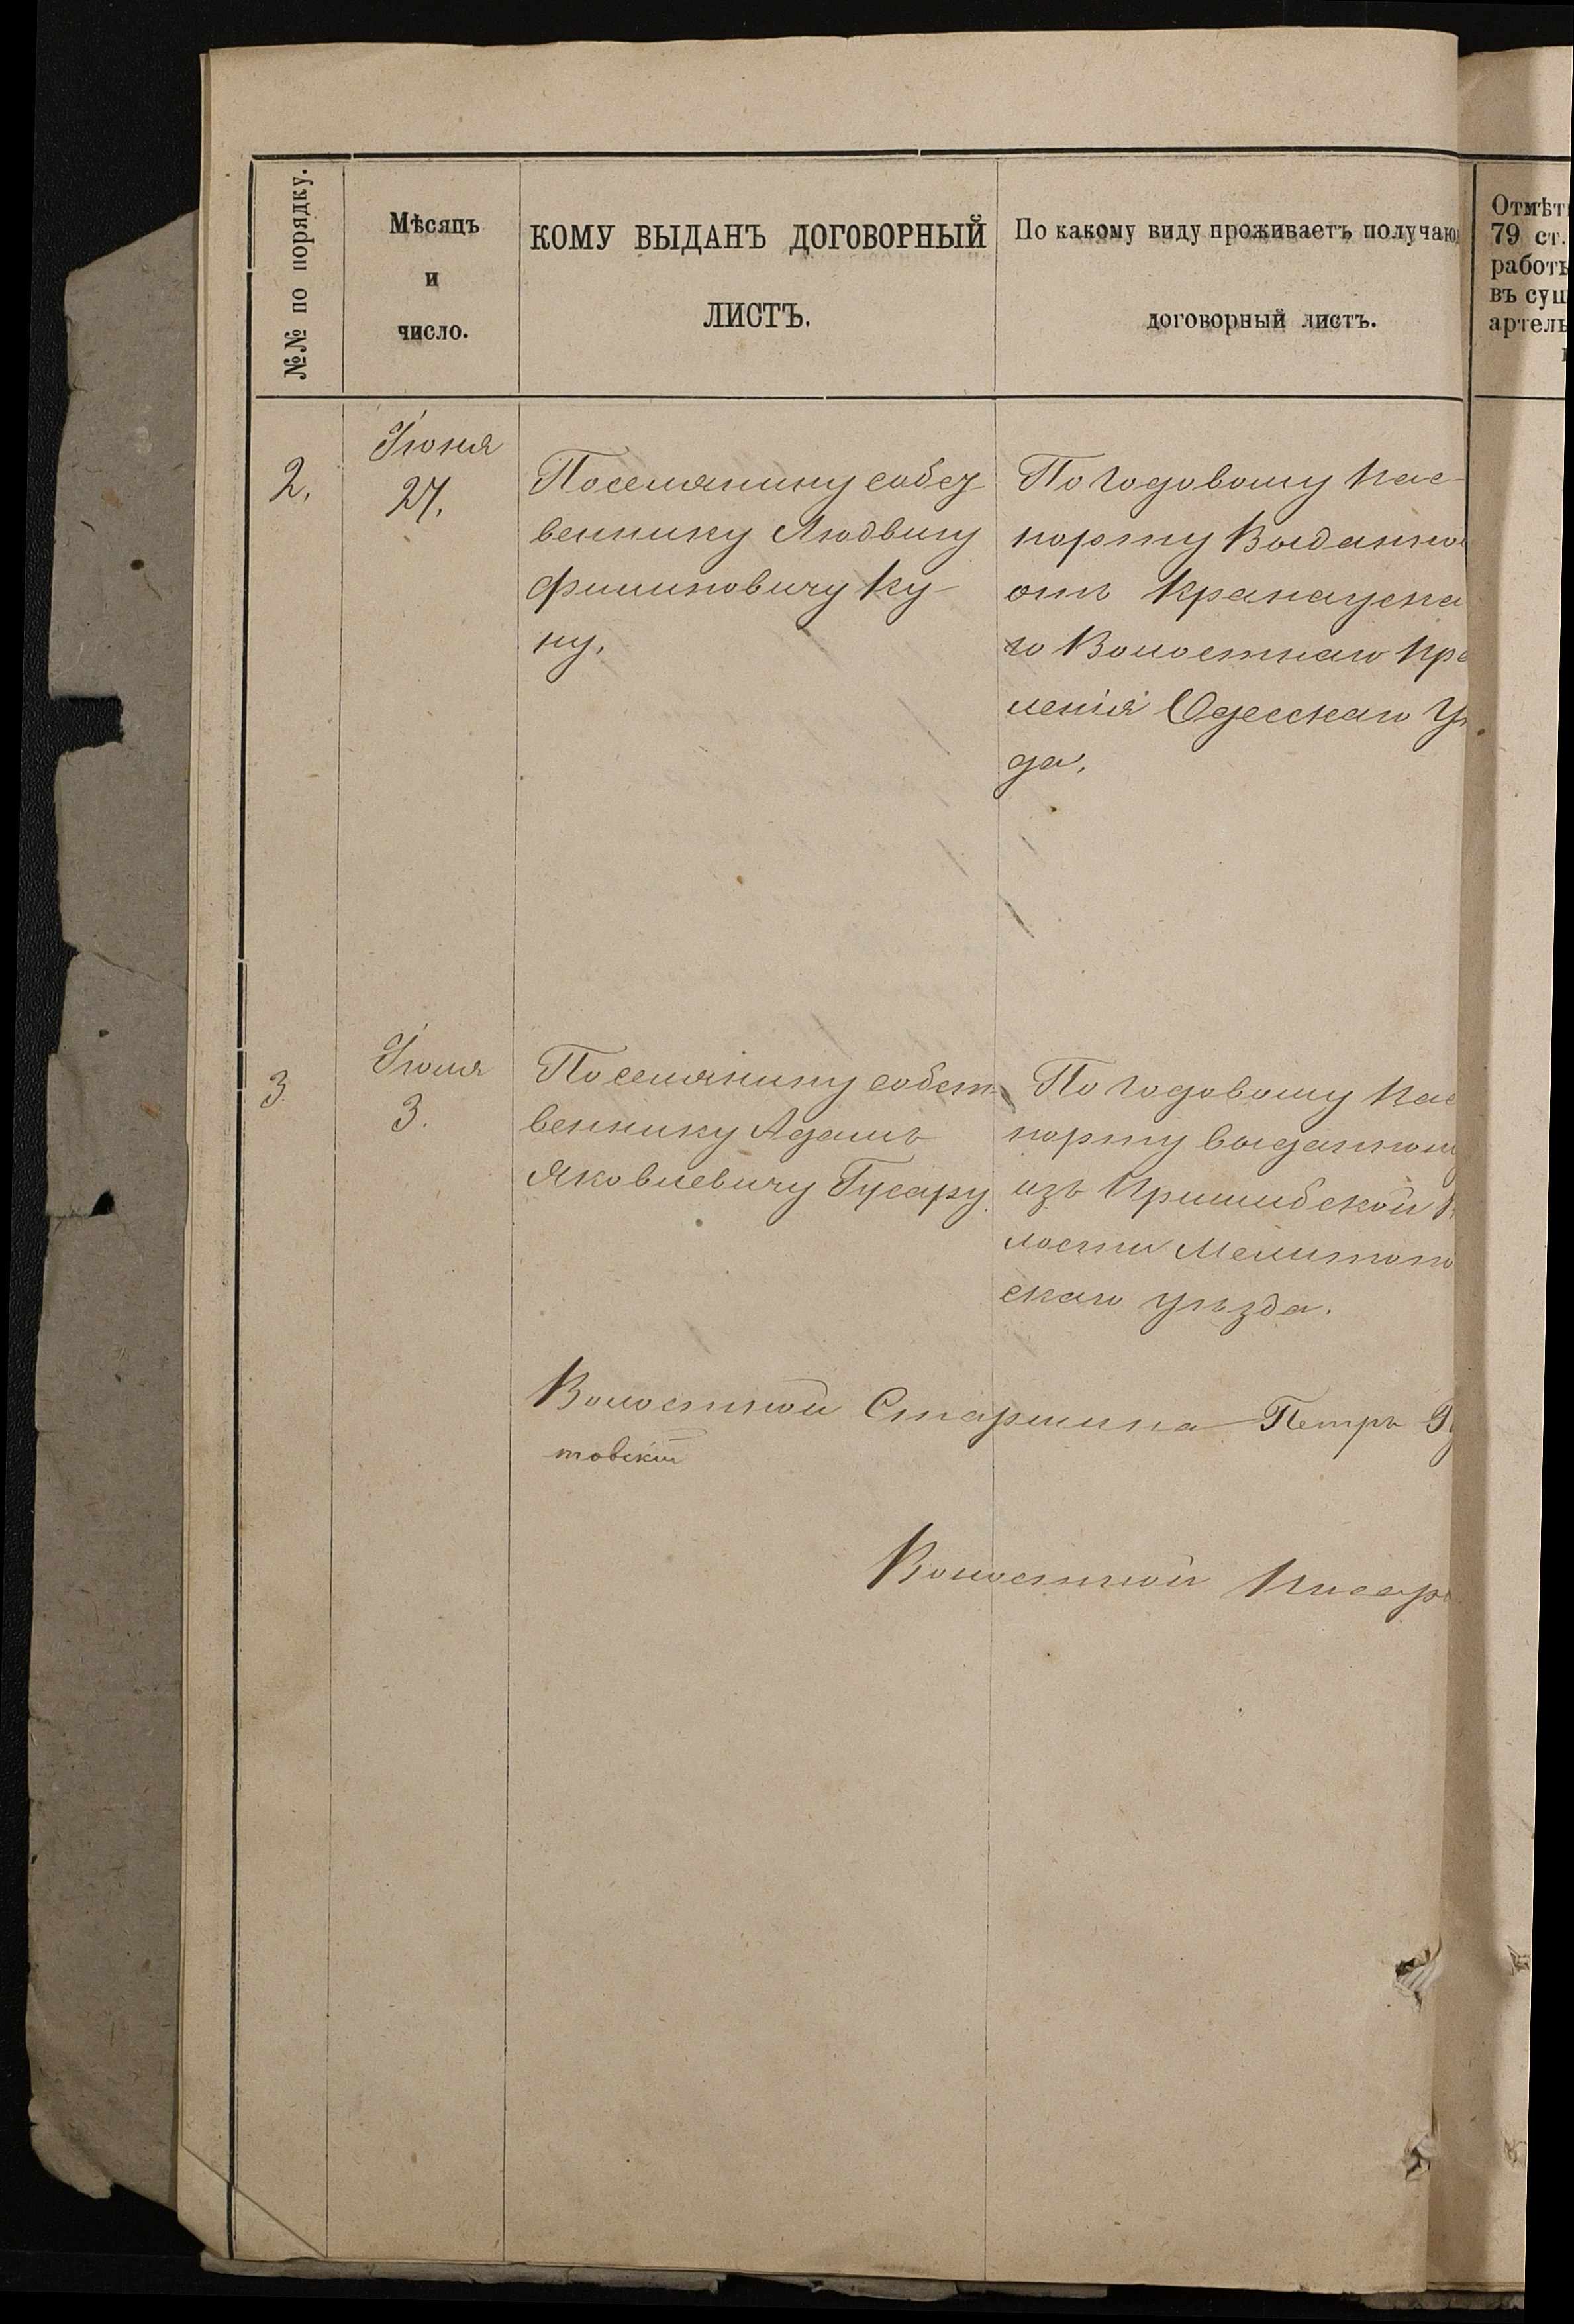 №№ по порядку.
Мѣсяцъ
и
число.
КОМУ ВЫДАНЪ ДОГОВОРНЫЙ
ЛИСТЪ.
По какому виду проживаетъ получаю
договорный листъ.
Отмѣт
79 ст.
работъ
въ сущ
артель
2.
Іюня
27.
Поселянину собст
веннику Людвигу
Филиповичу Ку-
ну.
По годовому пас-
порту Выданно
отъ Кранауска
го Волостнаго пра
ленія Одесскаго Уѣ
да.
3
Іюля
3.
Поселянину собст-
веннику Адаму
Яковлевичу Гусару.
По годовому пас
порту выданном
изъ Пришибской В
лости Мелитопо
скаго уѣзда.
Волостной Старшина Петръ
товскій
Волостной Писарь